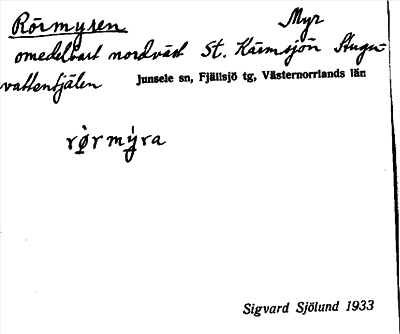 Rörmyren Myr
omedelbart nordväst St. Kärmsjön Stugu-
vattentjälen Junsele sn, Fjällsjö tg, Västernorrlands län
rø̀rmýra
Sigvard Sjölund 1933